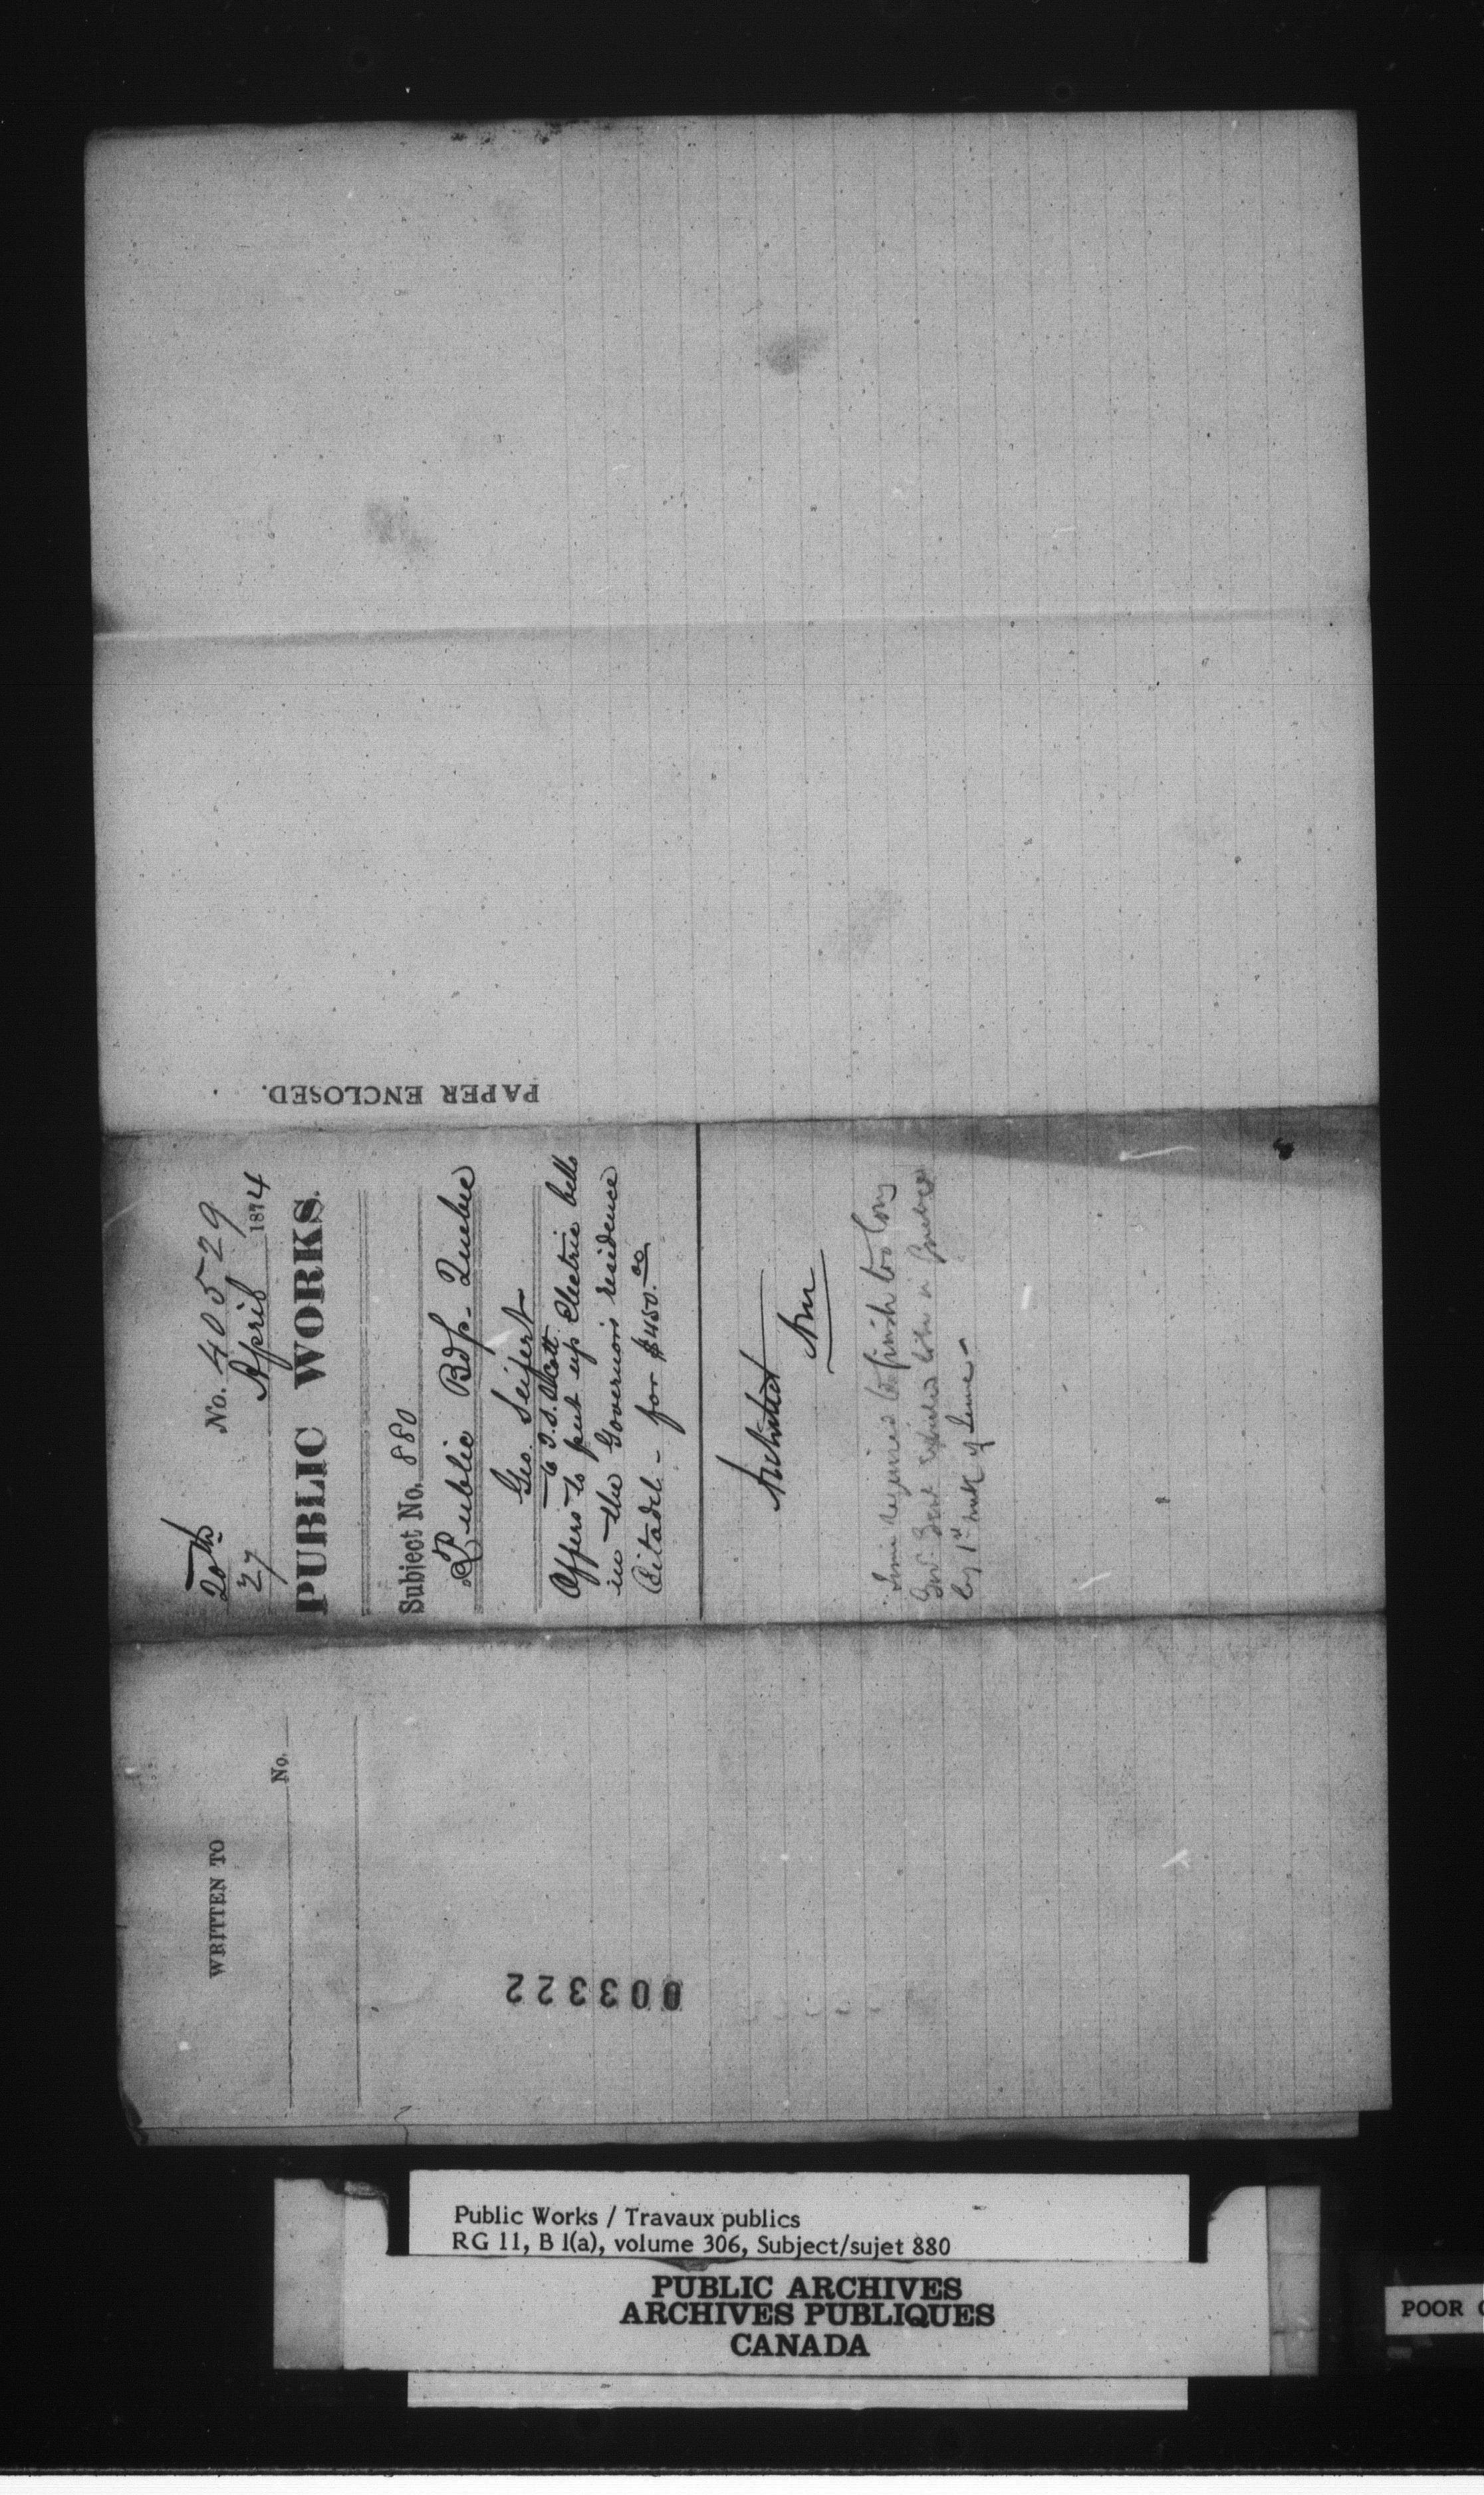 PAPER ENCLOSED.
20th No. 40529
27 April 1874
PUBLIC WORKS.
Subject No. 880
Public Bdgs. Quebec
Geo. Seifert
to T. S. Scott
Offers to put up Electric bells
in the Governor's residence
Citadel - for $450.00
Architect
Time required to finish too long
Gov. Genl to be in Quebec
by 1st week of June -
WRITTEN TO
No.
003322
Public Works / Travaux publics
RG 11, B 1(a), volume 306, Subject/sujet 880
PUBLIC ARCHIVES
ARCHIVES PUBLIQUES
CANADA
POOR